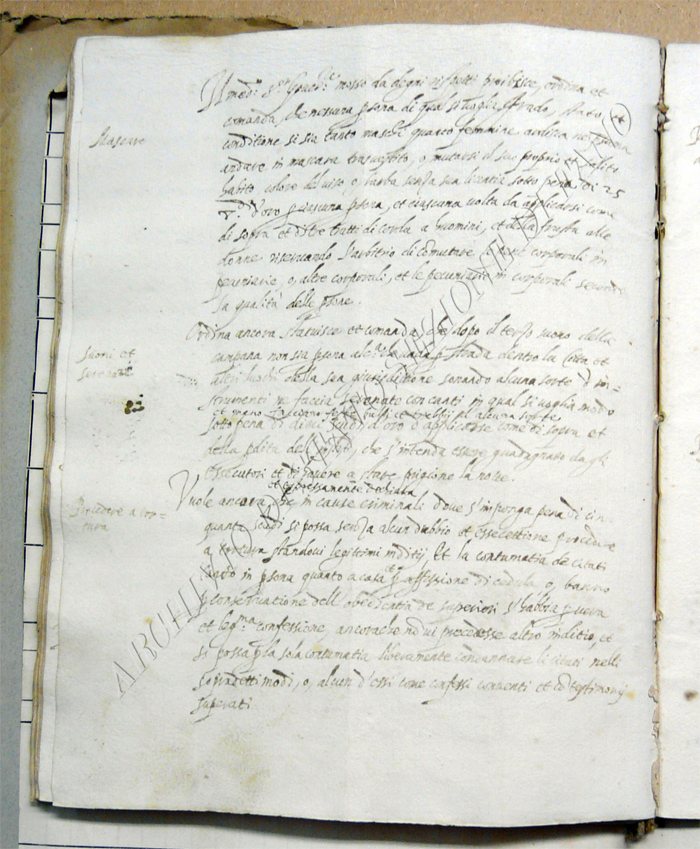 Il med.o S.or Gover.re mosso da degni rispetti prohibisce, ordina et
comanda, che nessuna psona di qual si voglia grado, stato, et
Mascare
conditione si sia tanto maschi quanto femmine, ardisca ne psuma
andare in mascara trasvestito, o mutarsi il suo proprio et solito
habito colore del viso, o, barba senza sua licentia sotto pena di 25
d'oro p ciascuna psona, et ciascuna volta da applicarsi come
di sopra et di tre tratti di corda a huomini, et della frusta alle
donne riservando l'arbitrio di comutare le pene corporali in
pecuniarie, o, altre corporali, et le pecuniarie in corporali secondo
la qualità delle psone.
Ordina ancora statuisce et comanda che dopo il terzo suono della
Suoni et
serenate
campana non sia psona alc.a vada p strada dentro la Città et
altri luochi della sua giurisditione sonando alcuna sorte d'in=
strumenti ne faccia serenate con canti in qual si voglia modo
sotto pena di dieci scudi d'oro d'applicarse come di sopra et
della pdita del suono, che s'intenda essere guadagnato da gli
essecutori et di dovere a stare prigione la notte.
et espressamente dechiara
Vuole ancora che in cause criminali dove s'imponga pena di cin
Procedere a tor=
tura
quanta scudi si possa senza alcun dubbio et essecettione procedere
a tortura standovi legittimi inditij Et la contumatia de citati
tanto in psona quanto a casa et p affissione di cedula o, banno
p conservatione dell'obbedientia de superiori s'habbia p vera
et leg.ma confessione, ancorache no vi precedesse altro inditio, et
si possa p la sola contumatia liberamente condannare li citati nelli
sopradetti modi, o, alcun d'essi come confessi conventi et co testimonij
superati
ARCHIVIO